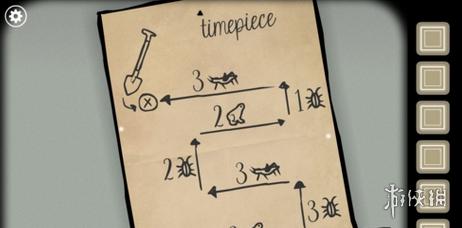 timepiece
3
1
2
2
3
3
游侠网